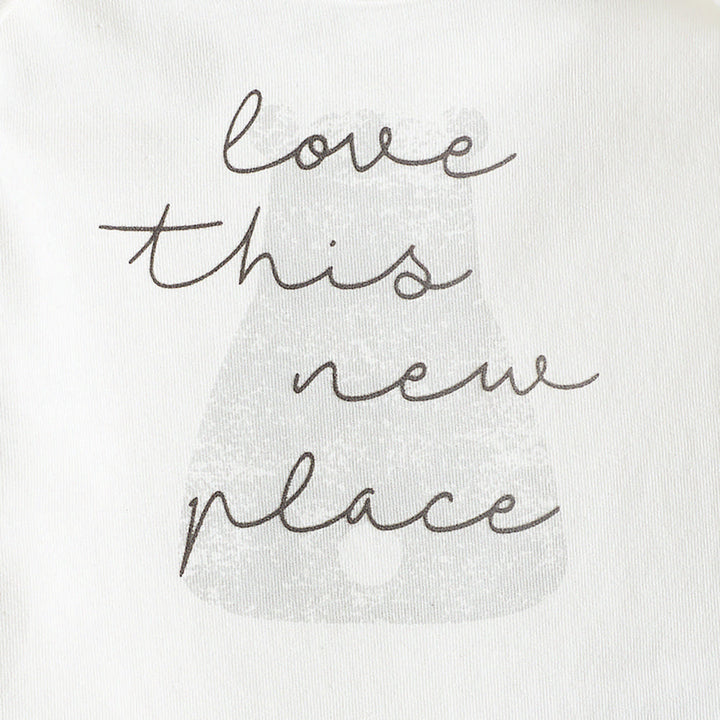 love
this
new
place